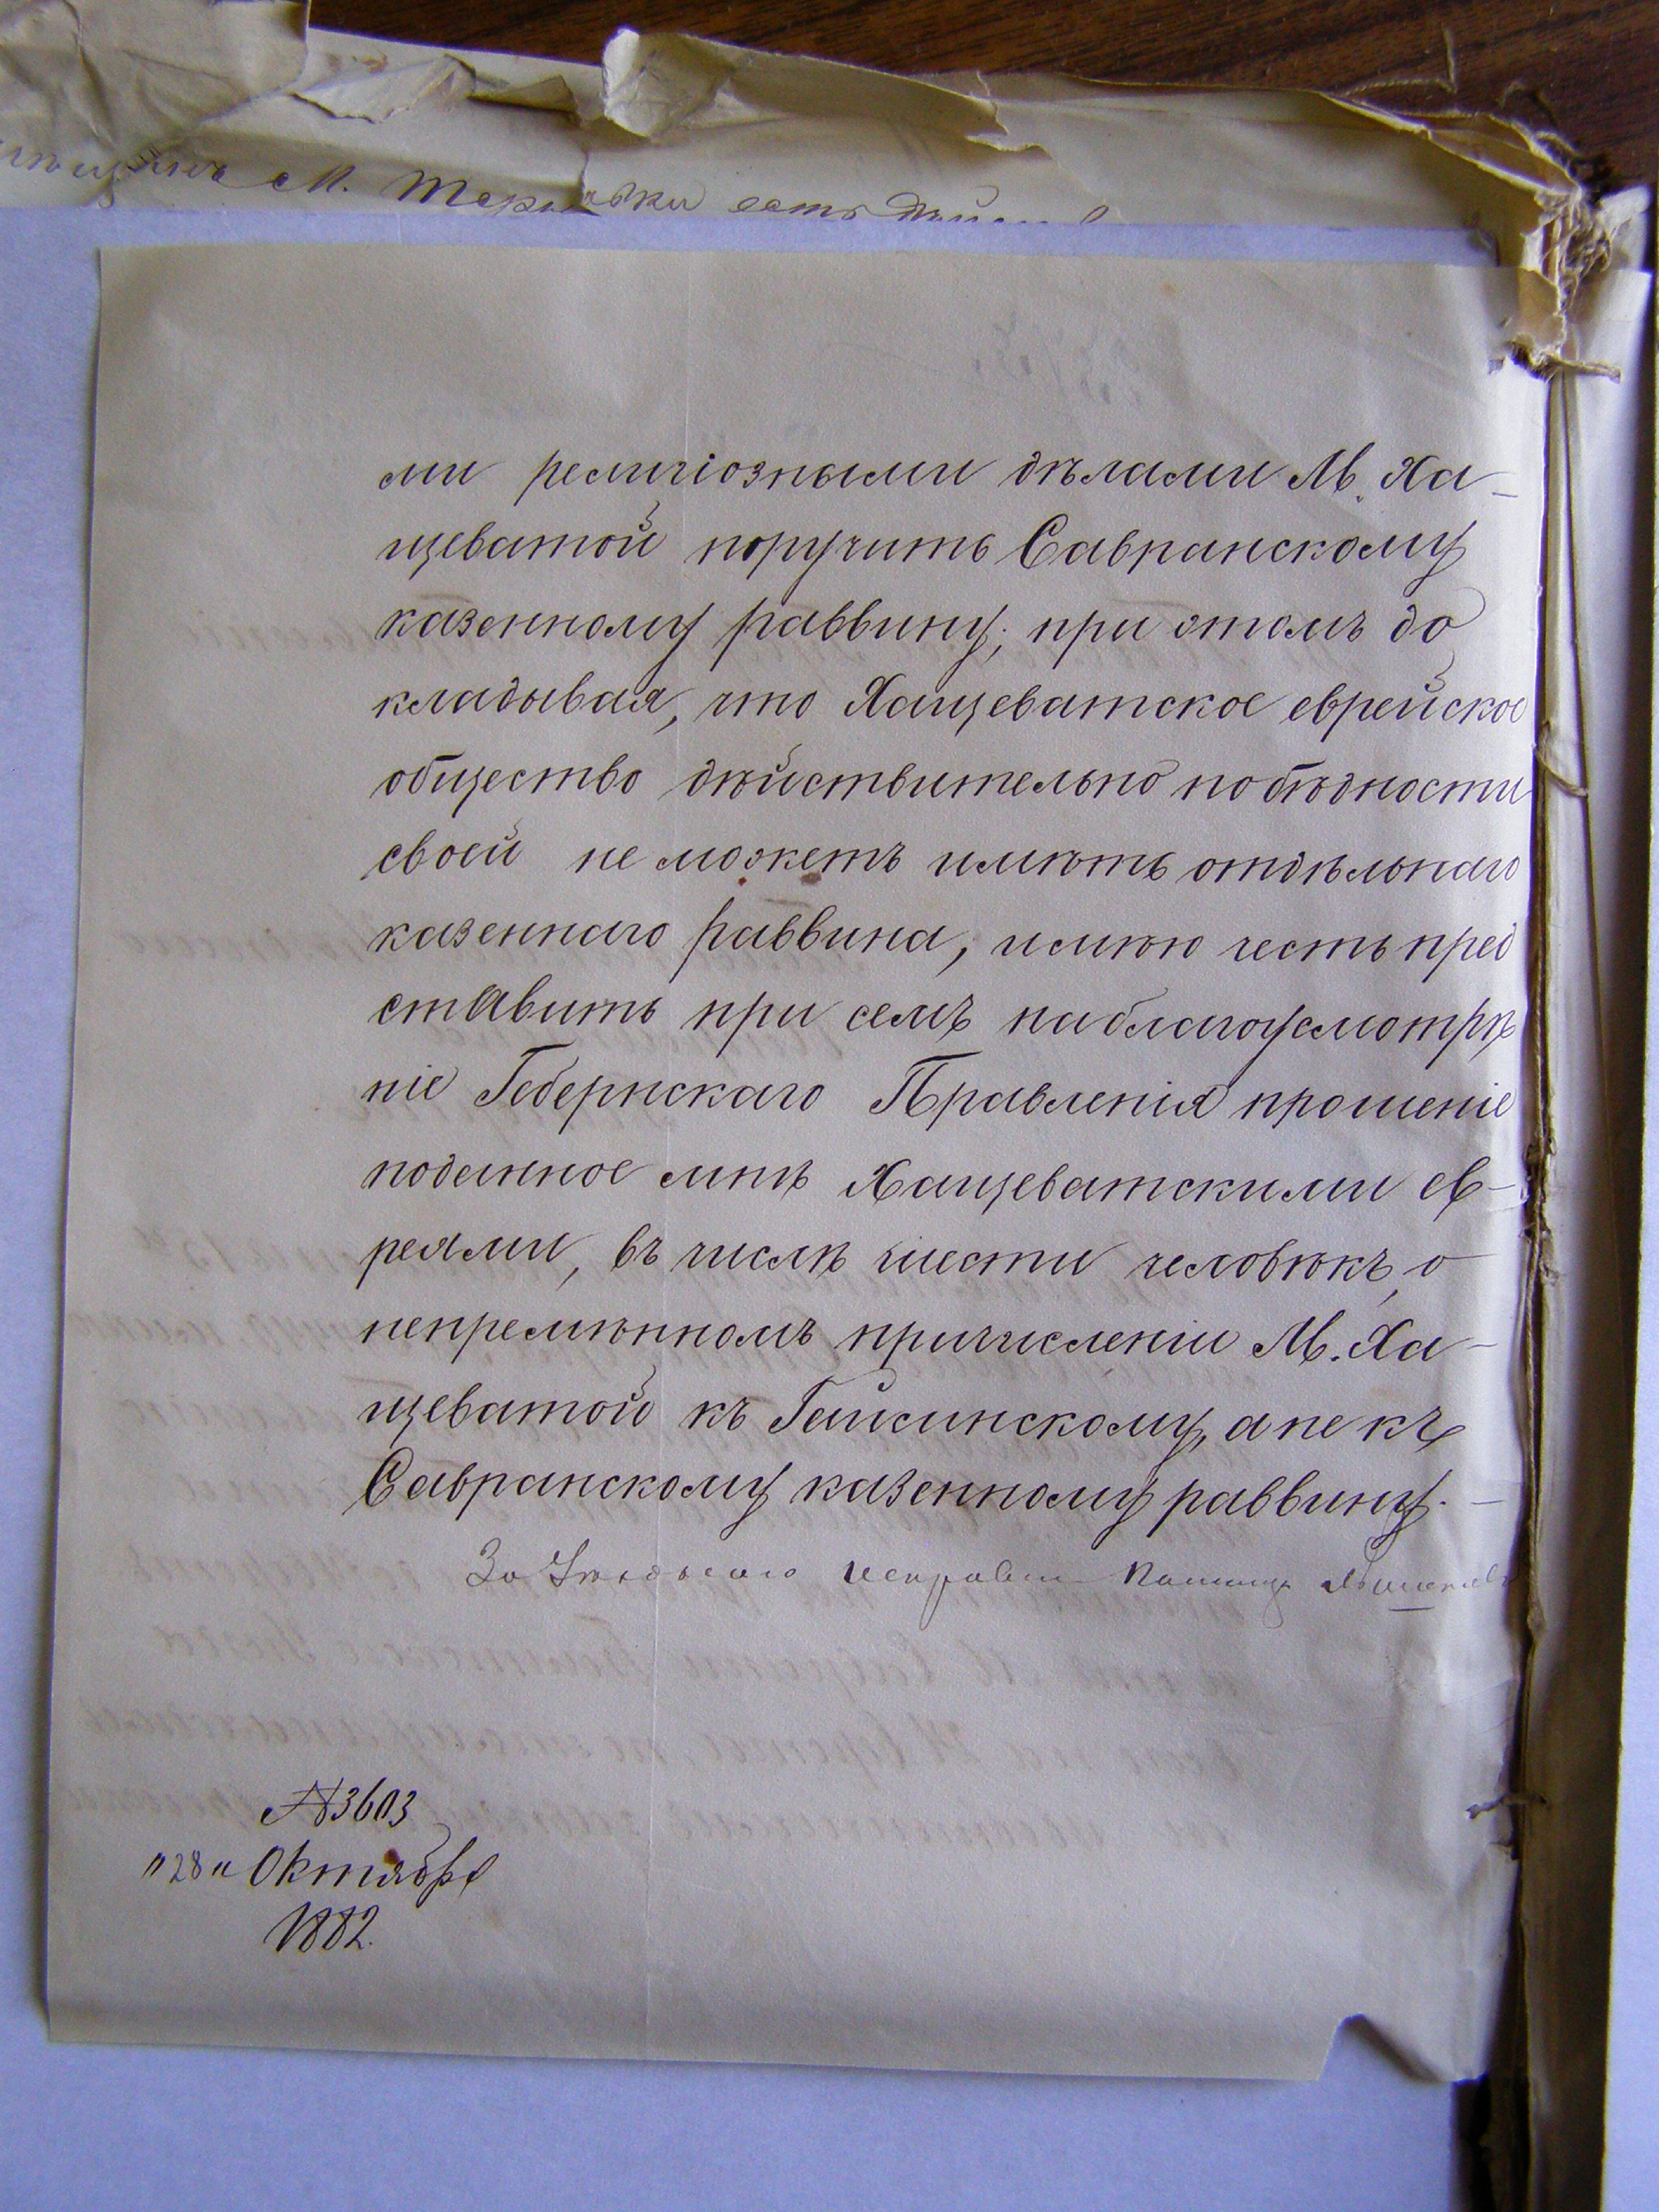 м. есть
ми религіозными дѣлами М. Ха-
щеватой поручить Савранскому
казенному раввину; при этомъ до
кладывая, что Хащеватское еврейское
общество дѣйствительно по бѣдности
своей не можетъ имѣть отдѣльнаго
казеннаго раввина, имѣю честь пред
ставить при семъ на благоусмотрѣ
ніе Губернскаго Правленія прошеніе
поданное мнѣ Хащеватскими ев-
реями, въ числѣ шести человѣкъ, о
непремѣнномъ причисленіи М. Ха-
щеватой къ Гайсинскому, а не къ
Савранскому казенному раввину. —
За Уѣзднаго Исправн Помощ
№3603
"28" Октября
1882.